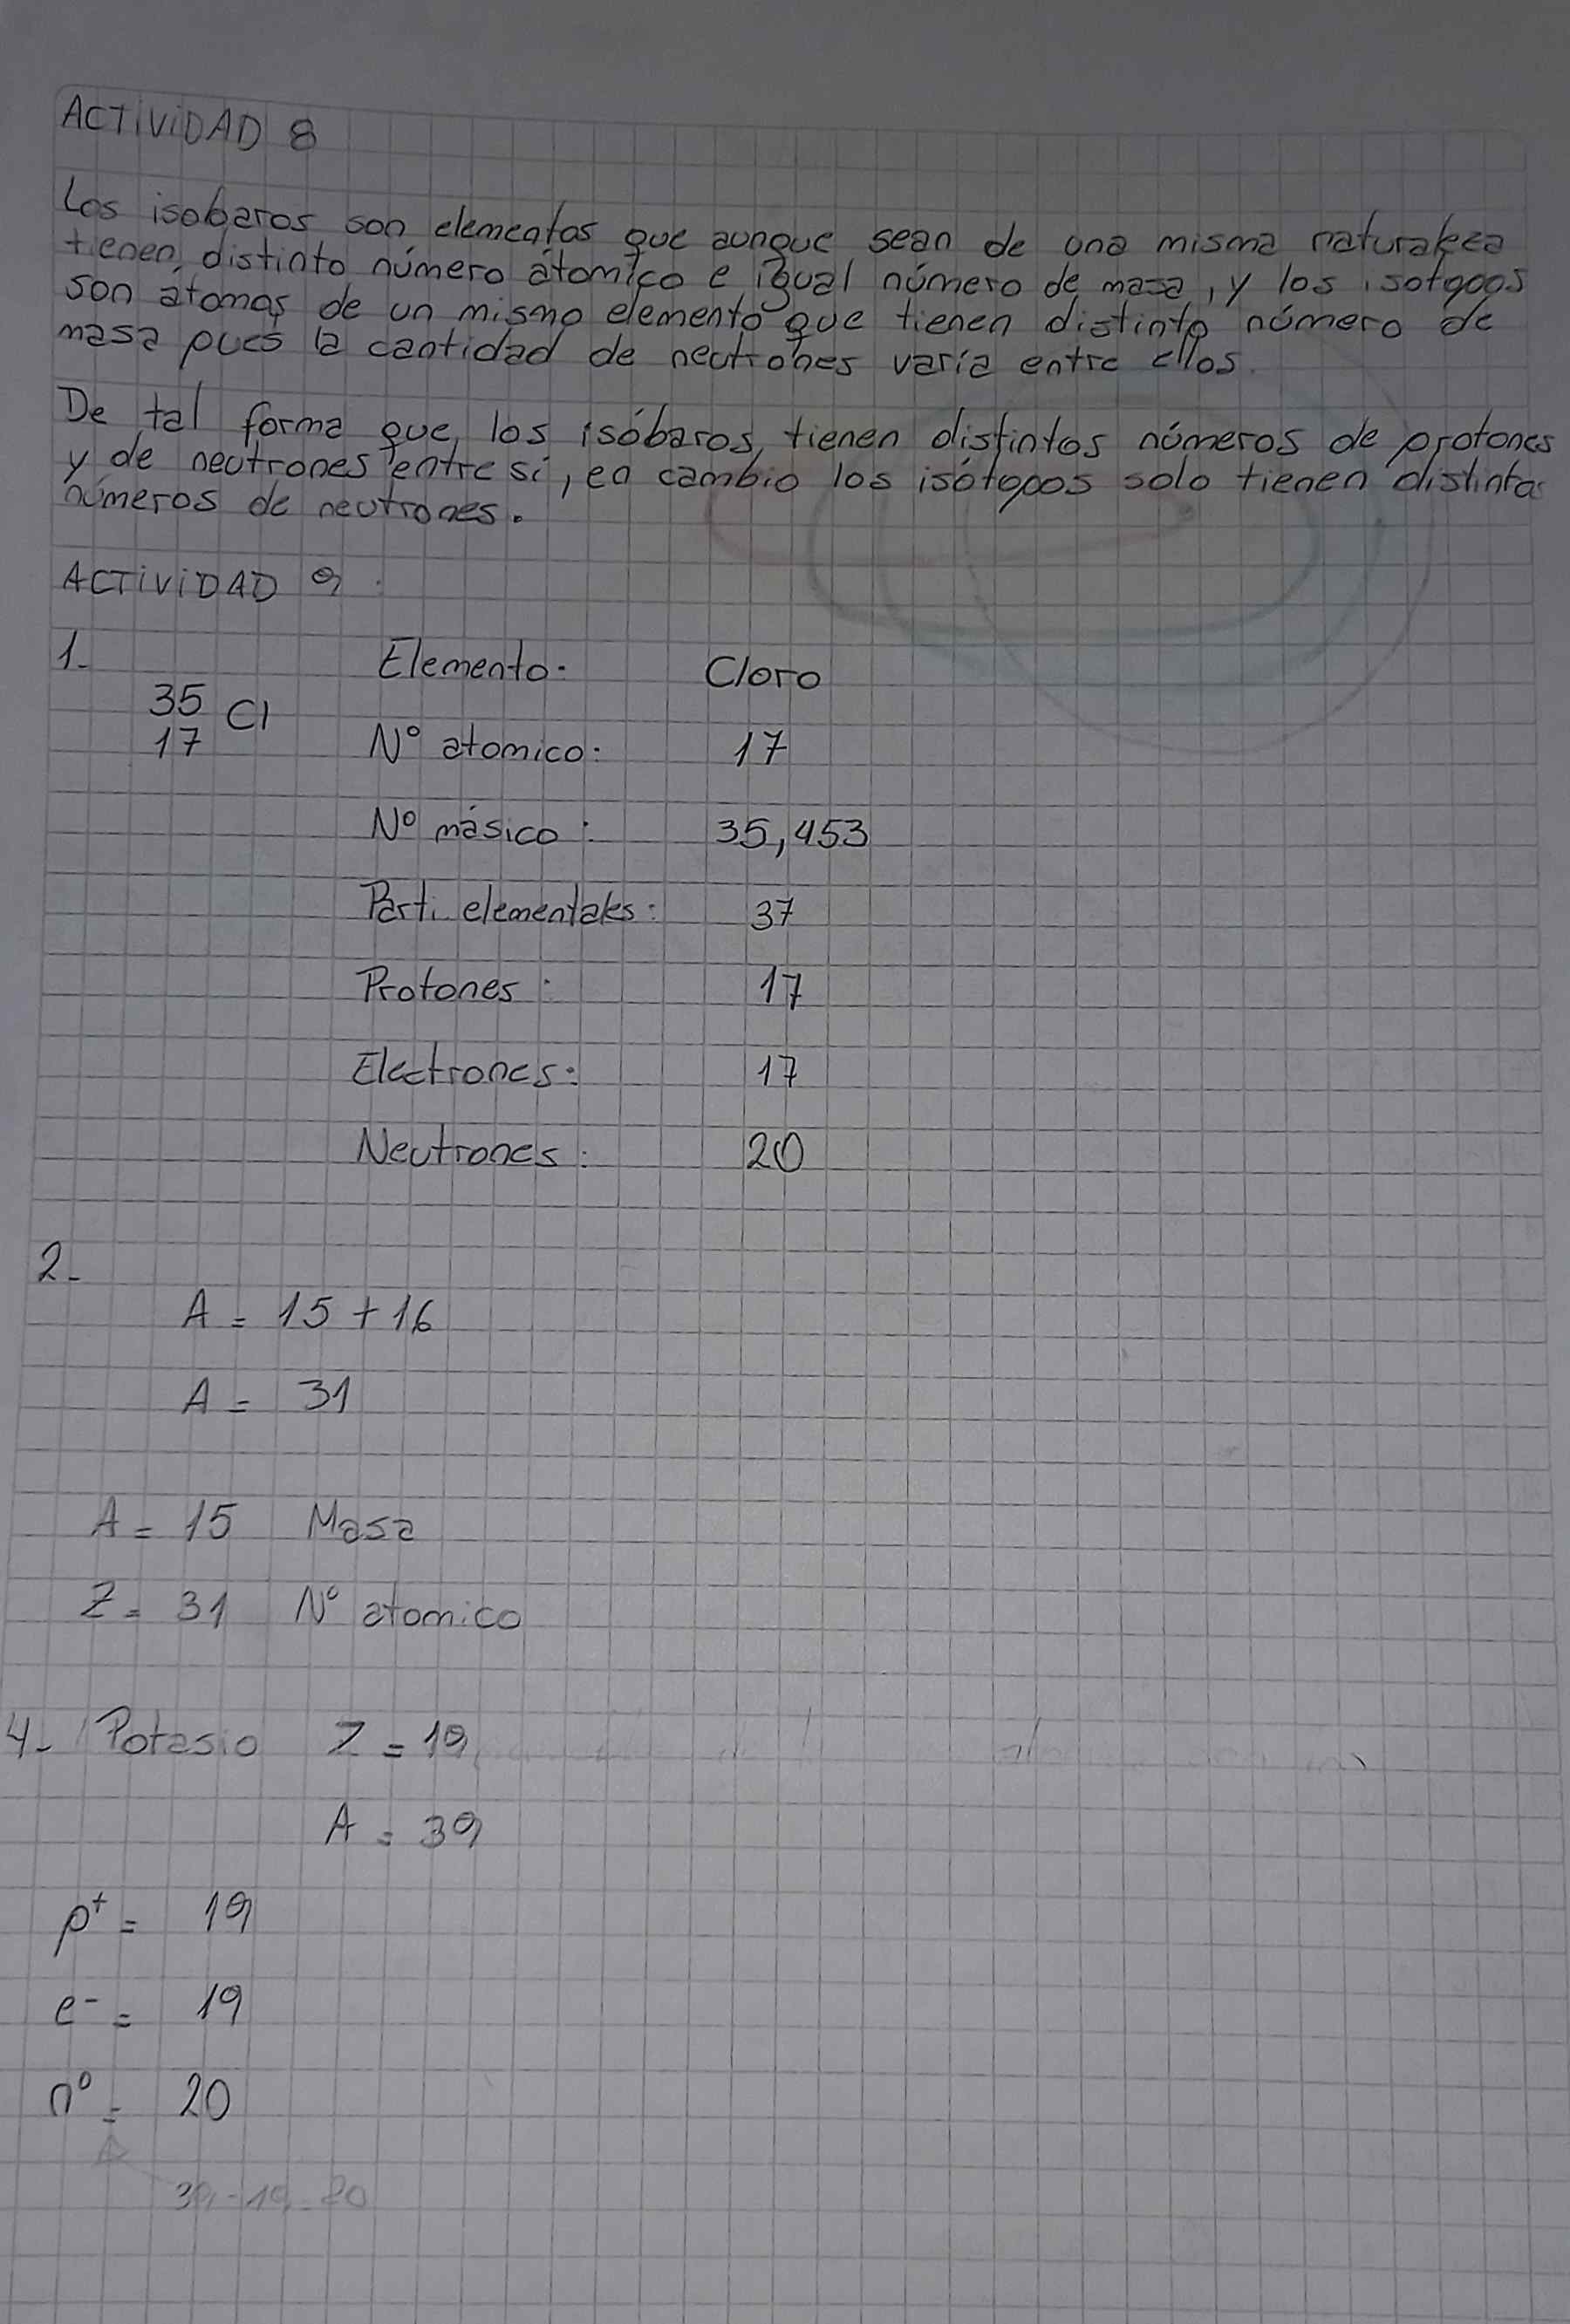 ACTIVIDAD 8
Los isobaros son elementos que aunque sean de una misma naturaleza
tienen distinto número átomico e igual número de masa, y los isotopos
son átomos de un mismo elemento que tienen distinto número de
masa pues la cantidad de neutrones varía entre ellos.
De tal forma que, los isóbaros, tienen distintos números de protones
y de neutrones entre sí, en cambio los isótopos solo tienen distintos
números de neutrones.
ACTIVIDAD 9
1- Elemento: Cloro
35
17 Cl
Nº atomico: 17
Nº másico: 35,453
Parti elementales: 37
Protones: 17
Electrones: 17
Neutrones: 20
2-
A = 15 + 16
A = 31
A = 15 Masa
Z = 31 Nº atomico
4- Potasio Z = 19
A = 39
p+ = 19
e- = 19
nº = 20
39-19=20